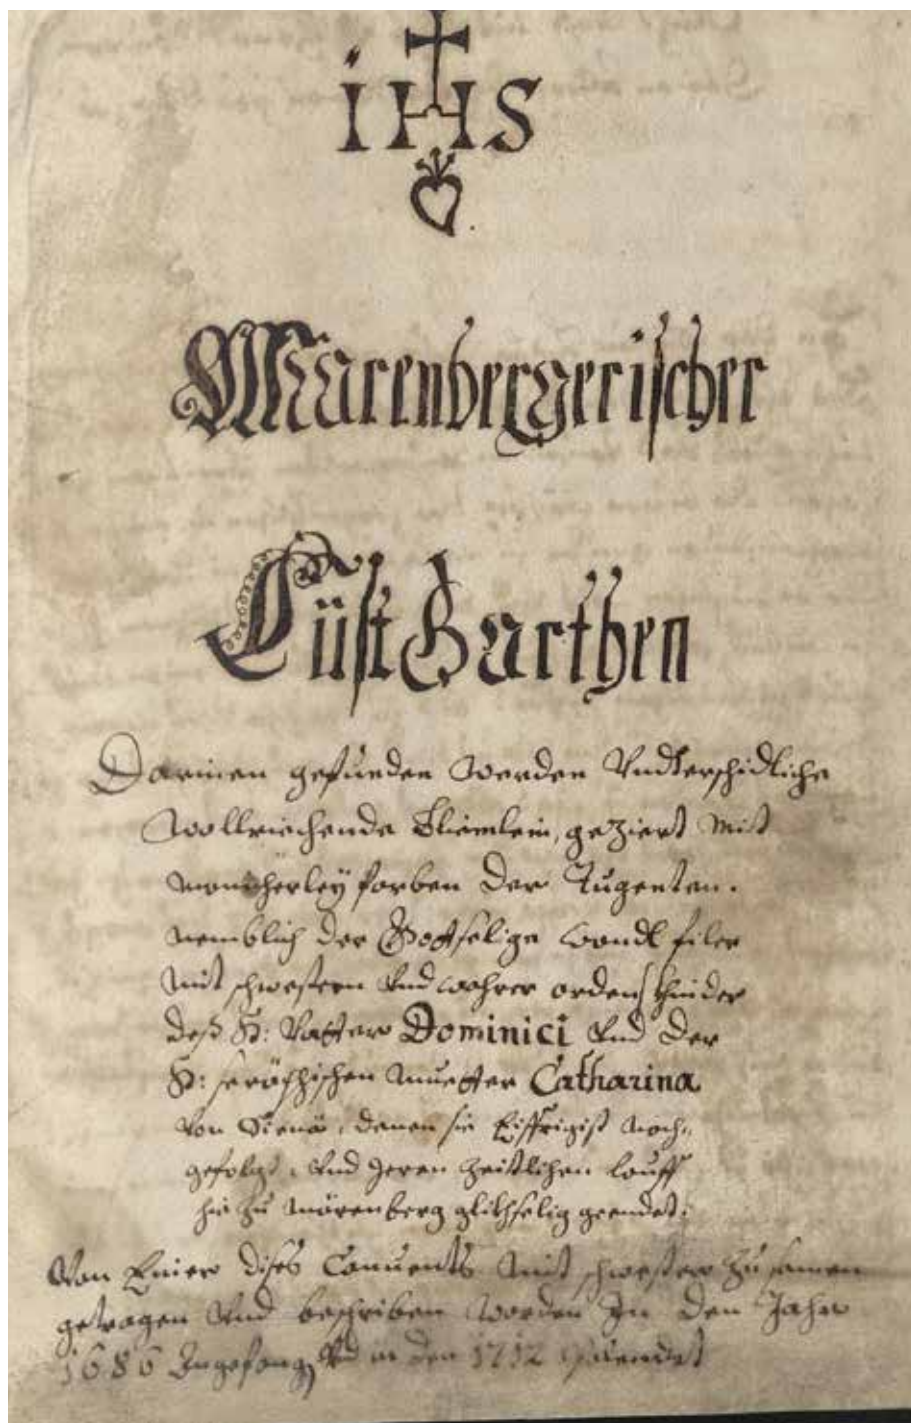 IHS
Marenbergerischer
Lüst Garthen
Darinen gefunden werden Vndterschidliche
wollriechende Bliemlein, geziert mit
mancherley farben der Tugenten.
nemblich der Gottselige wandl filer
mit schwestern Vnd wahrer orden kinder
deß H: Vatter Dominici Vnd der
H: seräphischen muetter Catharina
von Sienä, denen sie Eiffrigist nach-
gefolgt, Vnd Jeren zeittlichen lauff
hie zu märenberg glikhselig geendet.
Von Einer dises Conuents mit schwester zu samen
getragen Vnd beschriben worden In den Jahr
1686 Ingefang, Vnd in den 1712 Volendet